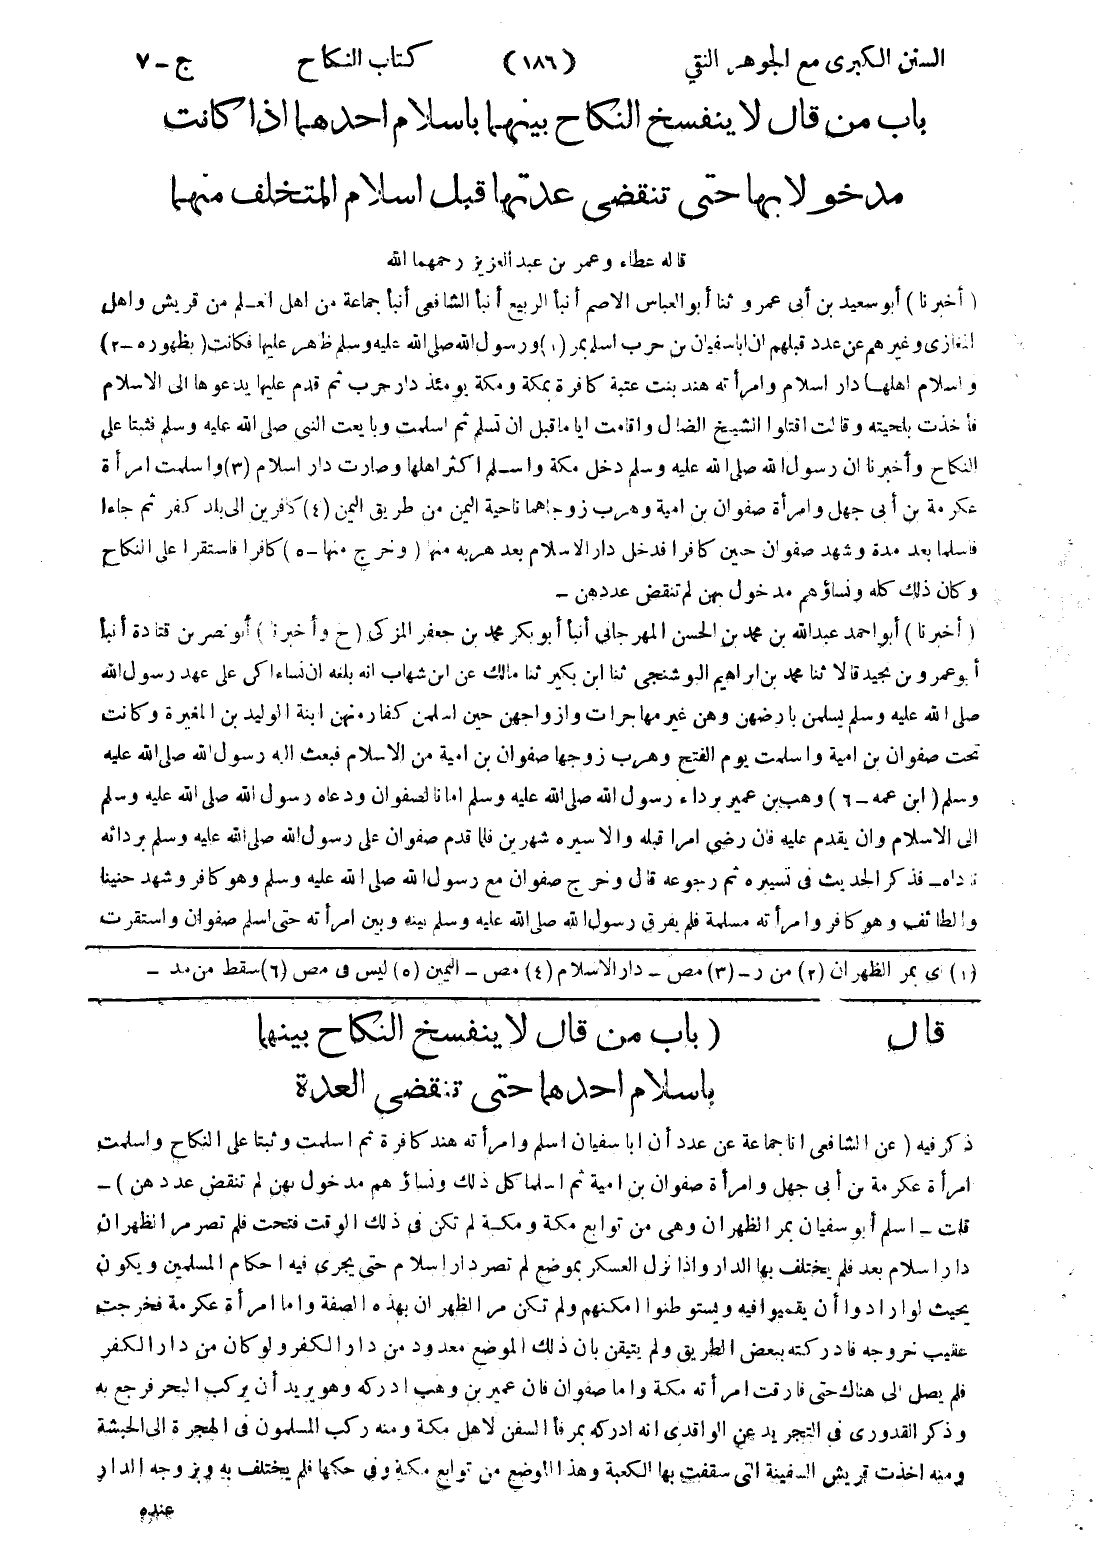 السنن الكبرى مع الجوهر النقي (١٨٦) كتاب النكاح ج - ٧
باب من قال لا ينفسخ النكاح بينهما باسلام احدهما اذا كانت
مدخولا بها حتى تنقضى عدتها قبل اسلام المتخلف منهما
قاله عطاء وعمر بن عبد العزيز رحمهما الله
( أخبرنا ) أبو سعيد بن أبى عمرو ثنا أبو العباس الاصم أنبأ الربيع أنبأ الشافعى أنبأ جماعة من اهل العلم من قريش واهل
المغازى وغيرهم عن عدد قبلهم ان اباسفيان بن حرب اسلم بمر (١) ورسول الله صلى الله عليه وسلم ظاهر عليها فكانت ( بظهوره - ٢)
واسلام اهلها دار اسلام وامرأته هند بنت عتبة كافرة بمكة ومكة يومئذ دار حرب ثم قدم عليها يدعوها الى الاسلام
فأخذت بلحيته وقالت اقتلوا الشيخ الضال واقامت اياما قبل ان تسلم ثم اسلمت وبايعت النبى صلى الله عليه وسلم فثبتا على
النكاح وأخبرنا ان رسول الله صلى الله عليه وسلم دخل مكة واسلم اكثر اهلها وصارت دار اسلام (٣) واسلمت امرأة
عكرمة بن أبى جهل وامرأة صفوان بن امية وهرب زوجاهما ناحية اليمن من طريق اليمن (٤) كافرين الى بلد كفر ثم جاءا
فاسلما بعد مدة وشهد صفوان حنين كافرا فدخل دار الاسلام بعد هربه منها ( وخرج منها - ٥ ) كافرا فاستقرا على النكاح
وكان ذلك كله ونساؤهم مدخول بهن لم تنقض عددهن -
( أخبرنا ) أبو احمد عبدالله بن محمد بن الحسن المهرجاني أنبأ أبو بكر محمد بن جعفر المزكى ( ح وأخبرنا ) أبو نصر بن قتادة أنبأ
أبو عمرو بن نجيد قالا ثنا محمد بن ابراهيم البوشنجى ثنا ابن بكير ثنا مالك عن ابن شهاب انه بلغه ان نساءا كن على عهد رسول الله
صلى الله عليه وسلم يسلمن بارضهن وهن غير مهاجرات وازواجهن حين اسلمن كفار منهن ابنة الوليد بن المغيرة وكانت
تحت صفوان بن امية واسلمت يوم الفتح وهرب زوجها صفوان بن امية من الاسلام فبعث اليه رسول الله صلى الله عليه
وسلم ( ابن عمه - ٦ ) وهب بن عمير برداء رسول الله صلى الله عليه وسلم امانا لصفوان ودعاه رسول الله صلى الله عليه وسلم
الى الاسلام وان يقدم عليه فان رضي امرا قبله والا سيره شهرين فلما قدم صفوان على رسول الله صلى الله عليه وسلم بردائه
ناداه - فذكر الحديث فى تسييره ثم رجوعه قال وخرج صفوان مع رسول الله صلى الله عليه وسلم وهو كافر وشهد حنينا
والطائف وهو كافر وامرأته مسلمة فلم يفرق رسول الله صلى الله عليه وسلم بينه وبين امرأته حتى اسلم صفوان واستقرت
(١) اى بمر الظهران (٢) من ر - (٣) مص - دار الاسلام (٤) مص - اليمين (٥) ليس فى مص (٦) سقط من مد -
قال ( باب من قال لا ينفسخ النكاح بينهما
باسلام احدهما حتى تنقضى العدة
ذكر فيه ( عن الشافعى انا جماعة عن عدد أن ابا سفيان اسلم وامرأته هند كافرة ثم اسلمت وثبتا على النكاح واسلمت
امرأة عكرمة بن أبى جهل وامرأة صفوان بن امية ثم اسلما كل ذلك ونساؤهم مدخول بهن لم تنقض عددهن ) -
قلت - اسلم أبو سفيان بمر الظهران وهى من توابع مكة ومكة لم تكن فى ذلك الوقت فتحت فلم تصر مر الظهران
دار اسلام بعد فلم يختلف بها الدار واذا نزل العسكر بموضع لم تصر دار اسلام حتى يجرى فيه احكام المسلمين ويكون
بحيث لو ارادوا أن يقيموا فيه ويستوطنوا امكنهم ولم تكن مر الظهران بهذه الصفة واما امرأة عكرمة فخرجت
عقيب خروجه فادركته ببعض الطريق ولم يتيقن بان ذلك الموضع معدود من دار الكفر ولو كان من دار الكفر
فلم يصل الى هناك حتى فارقت امرأته مكة واما صفوان فان عمير بن وهب ادركه وهو يريد أن يركب البحر فرجع به
وذكر القدورى فى التجريد عن الواقدى انه ادركه بمرفأ السفن لاهل مكة ومنه ركب المسلمون فى الهجرة الى الحبشة
ومنه اخذت قريش السفينة التى سقفت بها الكعبة وهذا الموضع من توابع مكة وفى حكمها فلم يختلف به وبزوجه الدار
عنده